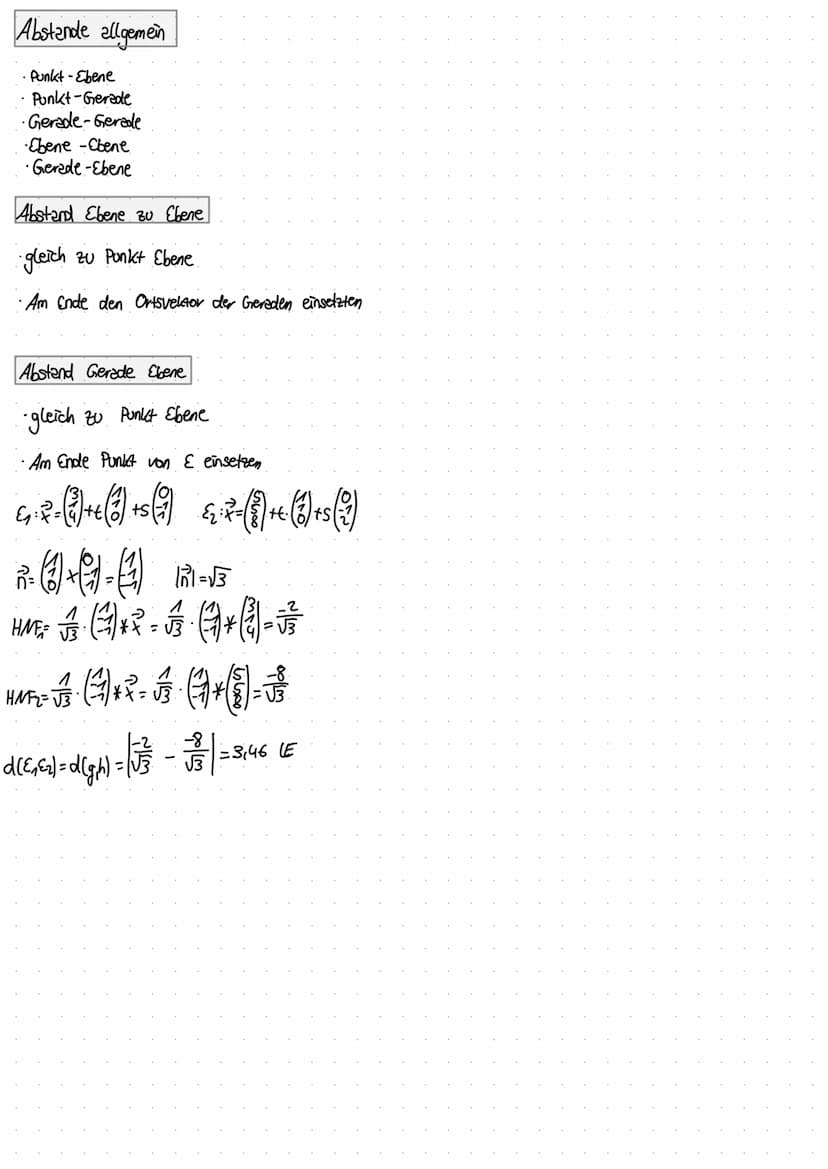 Abstände allgemein
· Punkt - Ebene
· Punkt - Gerade
· Gerade - Gerade
· Ebene - Ebene
· Gerade - Ebene
Abstand Ebene zu Ebene
· gleich zu Punkt Ebene
· Am Ende den Ortsvektor der Geraden einsetzten
Abstand Gerade Ebene
· gleich zu Punkt Ebene
· Am Ende Punkt von E einsetzen
E₁: x⃗ = (3 1 4) + t (1 1 0) + s (0 -1 -1) E₂: x⃗ = (5 5 8) + t · (1 1 0) + s (0 -1 2)
n⃗ = (1 1 0) × (0 -1 -1) = (-1 1 -1) |n⃗| = √3
HNF₁ = 1/√3 · (1 -1 -1) * x⃗ = 1/√3 · (1 -1 -1) * (3 1 4) = -2/√3
HNF₂ = 1/√3 · (1 -1 -1) * x⃗ = 1/√3 · (1 -1 -1) * (5 5 8) = -8/√3
d(E₁,E₂) = d(g,h) = |-2/√3 - -8/√3| = 3,46 LE